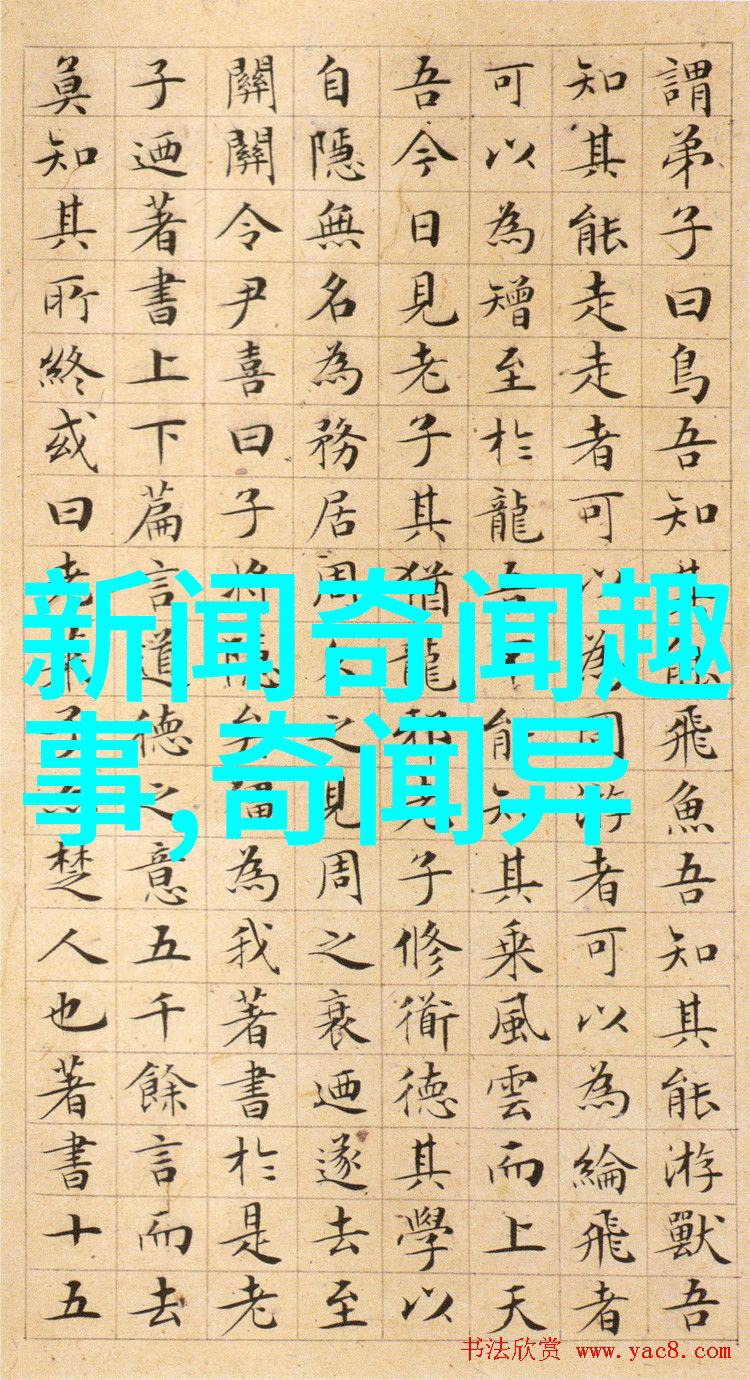 新闻奇闻趣
事,奇闻异
謂弟子曰鳥吾知其能飛魚吾知其能游獸吾
知其能走走者可以為罔游者可以為綸飛者
可以為矰至於龍吾不能知其乘風雲而上天
吾今日見老子其猶龍邪老子修衜德其學以
自隱無名為務居周久之見周之衰迺遂去至
關關令尹喜曰子將隱矣彊為我著書於是老
子迺著書上下篇言道德之意五千餘言而去
莫知其所終或曰老萊子亦楚人也著書十五
书法欣赏 www.yac8.com